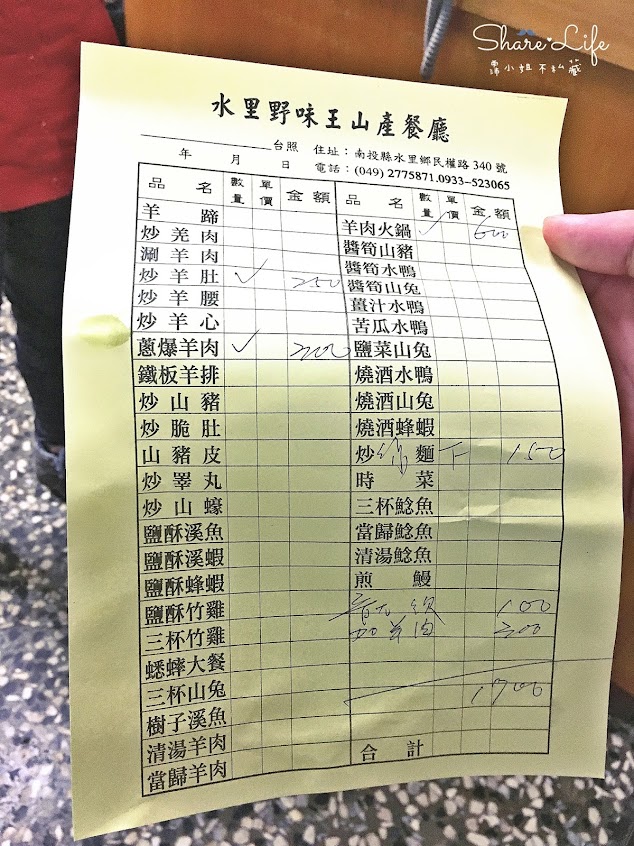 Share Life
霈小姐不私藏
水里野味王山產餐廳
台照 住址：南投縣水里鄉民權路340號
年 月 日 電話：(049) 2775871.0933-523065
品名 數量 單價 金額 品名 數量 單價 金額
羊蹄 羊肉火鍋 ✓ 600
炒羌肉 醬筍山豬
涮羊肉 醬筍水鴨
炒羊肚 ✓ 250 醬筍山兔
炒羊腰 薑汁水鴨
炒羊心 苦瓜水鴨
蔥爆羊肉 ✓ 200 鹽菜山兔
鐵板羊排 燒酒水鴨
炒山豬 燒酒山兔
炒脆肚 燒酒蜂蝦
山豬皮 炒 麵 下 150
炒睪丸 時菜
炒山蠔 三杯鯰魚
鹽酥溪魚 當歸鯰魚
鹽酥溪蝦 清湯鯰魚
鹽酥蜂蝦 煎鰻
鹽酥竹雞 100
三杯竹雞 加羊肉 200
蟋蟀大餐
三杯山兔 1700
樹子溪魚
清湯羊肉 合計
當歸羊肉